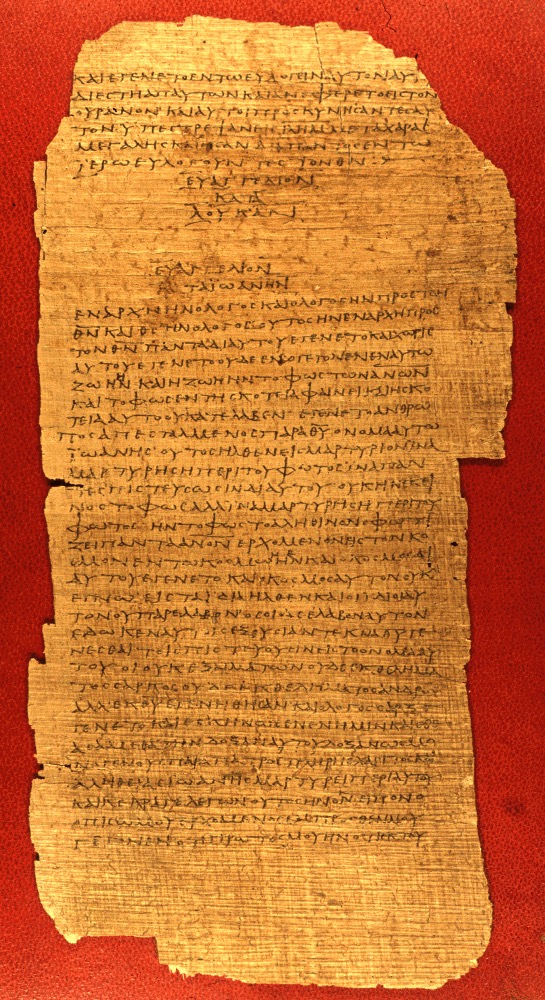 ΚΑΙΕΓΕΝΕΤΟΕΝΤΩΕΥΛΟΓΕΙΝΑΥΤΟΝΑΥ
ΔΙΕϹΤΗΑΠΑΥΤΩΝΚΑΙΑΝΕΦΕΡΕΤΟΕΙϹΤΟΝ
ΟΥΡΑΝΟΝΚΑΙΑΥΤΟΙΠΡΟϹΚΥΝΗϹΑΝΤΕϹΑΥ
ΤΟΝΥΠΕϹΤΡΕΨΑΝΕΙϹΙΛΗΜΜΕΤΑΧΑΡΑϹ
ΜΕΓΑΛΗϹΚΑΙΗϹΑΝΔΙΑΠΑΝΤΟϹΕΝΤΩ
ΪΕΡΩΕΥΛΟΓΟΥΝΤΕϹΤΟΝΘΝ
ΕΥΑΓΓΕΛΙΟΝ
ΚΑΤΑ
ΛΟΥΚΑΝ
ΕΥΑΓΓΕΛΙΟΝ
ΚΑΤΑΪΩΑΝΗΝ
ΕΝΑΡΧΗΗΝΟΛΟΓΟϹΚΑΙΟΛΟΓΟϹΗΝΠΡΟϹΤΟΝ
ΘΝΚΑΙΘϹΗΝΟΛΟΓΟϹΟΥΤΟϹΗΝΕΝΑΡΧΗΠΡΟϹ
ΤΟΝΘΝΠΑΝΤΑΔΙΑΥΤΟΥΕΓΕΝΕΤΟΚΑΙΧΩΡΙϹ
ΑΥΤΟΥΕΓΕΝΕΤΟΟΥΔΕΕΝΟΓΕΓΟΝΕΝΕΝΑΥΤΩ
ΖΩΗΗΝΚΑΙΗΖΩΗΗΝΤΟΦΩϹΤΩΝΑΝΩΝ
ΚΑΙΤΟΦΩϹΕΝΤΗϹΚΟΤΕΙΑΦΑΙΝΕΙΚΑΙΗϹΚΟ
ΤΕΙΑΑΥΤΟΟΥΚΑΤΕΛΑΒΕΝΕΓΕΝΕΤΟΑΝΘΡΩ
ΠΟϹΑΠΕϹΤΑΛΜΕΝΟϹΠΑΡΑΘΥΟΝΟΜΑΑΥΤΩ
ΪΩΑΝΗϹΟΥΤΟϹΗΛΘΕΝΕΙϹΜΑΡΤΥΡΙΟΝΪΝΑ
ΜΑΡΤΥΡΗϹΗΠΕΡΙΤΟΥΦΩΤΟϹΪΝΑΠΑΝ
ΤΕϹΠΙϹΤΕΥϹΩϹΙΝΔΙΑΥΤΟΥΟΥΚΗΝΕΚΕΙ
ΝΟϹΤΟΦΩϹΑΛΛΙΝΑΜΑΡΤΥΡΗϹΗΠΕΡΙΤΟΥ
ΦΩΤΟϹΗΝΤΟΦΩϹΤΟΑΛΗΘΙΝΟΝΟΦΩΤΙ
ΖΕΙΠΑΝΤΑΑΝΟΝΕΡΧΟΜΕΝΟΝΕΙϹΤΟΝΚΟ
ϹΜΟΝΕΝΤΩΚΟϹΜΩΗΝΚΑΙΟΚΟϹΜΟϹΔΙ
ΑΥΤΟΥΕΓΕΝΕΤΟΚΑΙΟΚΟϹΜΟϹΑΥΤΟΝΟΥΚ
ΕΓΝΩΕΙϹΤΑΙΔΙΑΗΛΘΕΝΚΑΙΟΙΙΔΙΟΙΑΥ
ΤΟΝΟΥΠΑΡΕΛΑΒΟΝΟϹΟΙΔΕΕΛΑΒΟΝΑΥΤΟΝ
ΕΔΩΚΕΝΑΥΤΟΙϹΕΞΟΥϹΙΑΝΤΕΚΝΑΘΥΓΕ
ΝΕϹΘΑΙΤΟΙϹΠΙϹΤΕΥΟΥϹΙΝΕΙϹΤΟΟΝΟΜΑΑΥ
ΤΟΥΟΙΟΥΚΕΞΑΙΜΑΤΩΝΟΥΔΕΕΚΘΕΛΗΜΑ
ΤΟϹϹΑΡΚΟϹΟΥΔΕΕΚΘΕΛΗΜΑΤΟϹΑΝΔΡΟϹ
ΑΛΛΕΚΘΥΕΓΕΝΗΘΗϹΑΝΚΑΙΟΛΟΓΟϹϹΑΡΞΕ
ΓΕΝΕΤΟΚΑΙΕϹΚΗΝΩϹΕΝΕΝΗΜΙΝΚΑΙΕΘΕ
ΑϹΑΜΕΘΑΤΗΝΔΟΞΑΝΑΥΤΟΥΔΟΞΑΝΩϹΜΟ
ΝΟΓΕΝΟΥϹΠΑΡΑΠΑΤΡΟϹΠΛΗΡΗϹΧΑΡΙΤΟϹΚΑΙ
ΑΛΗΘΕΙΑϹΪΩΑΝΗϹΜΑΡΤΥΡΕΙΠΕΡΙΑΥΤΟΥ
ΚΑΙΚΕΚΡΑΓΕΛΕΓΩΝΟΥΤΟϹΗΝΟΝΕΙΠΟΝΟ
ΟΠΙϹΩΜΟΥΕΡΧΟΜΕΝΟϹΕΜΠΡΟϹΘΕΝΜΟΥ
ΓΕΓΟΝΕΝΟΤΙΠΡΩΤΟϹΜΟΥΗΝΟΤΙΕΚΤΟΥ